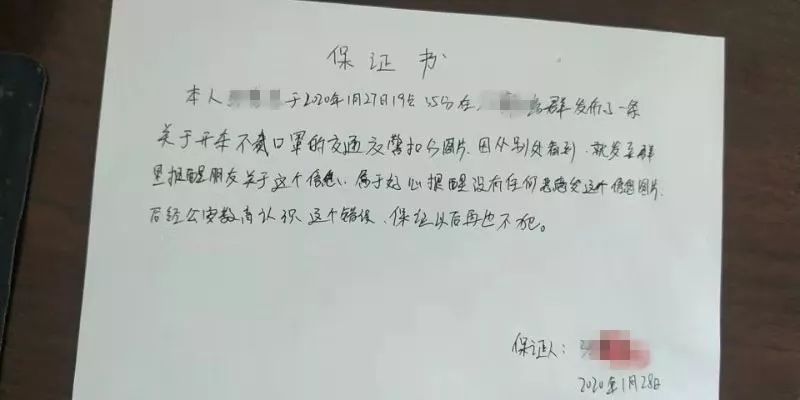 保证书
本人于2020年1月27日19点35分在群发布了一条
关于开车不戴口罩的交通交警扣分图片,因从别处看到,就发至群
里提醒朋友关于这个信息,属于好心提醒没有任何恶意发这个信息图片,
后经公安教育认识这个错误、保证以后再也不犯。
保证人:
2020年1月28日